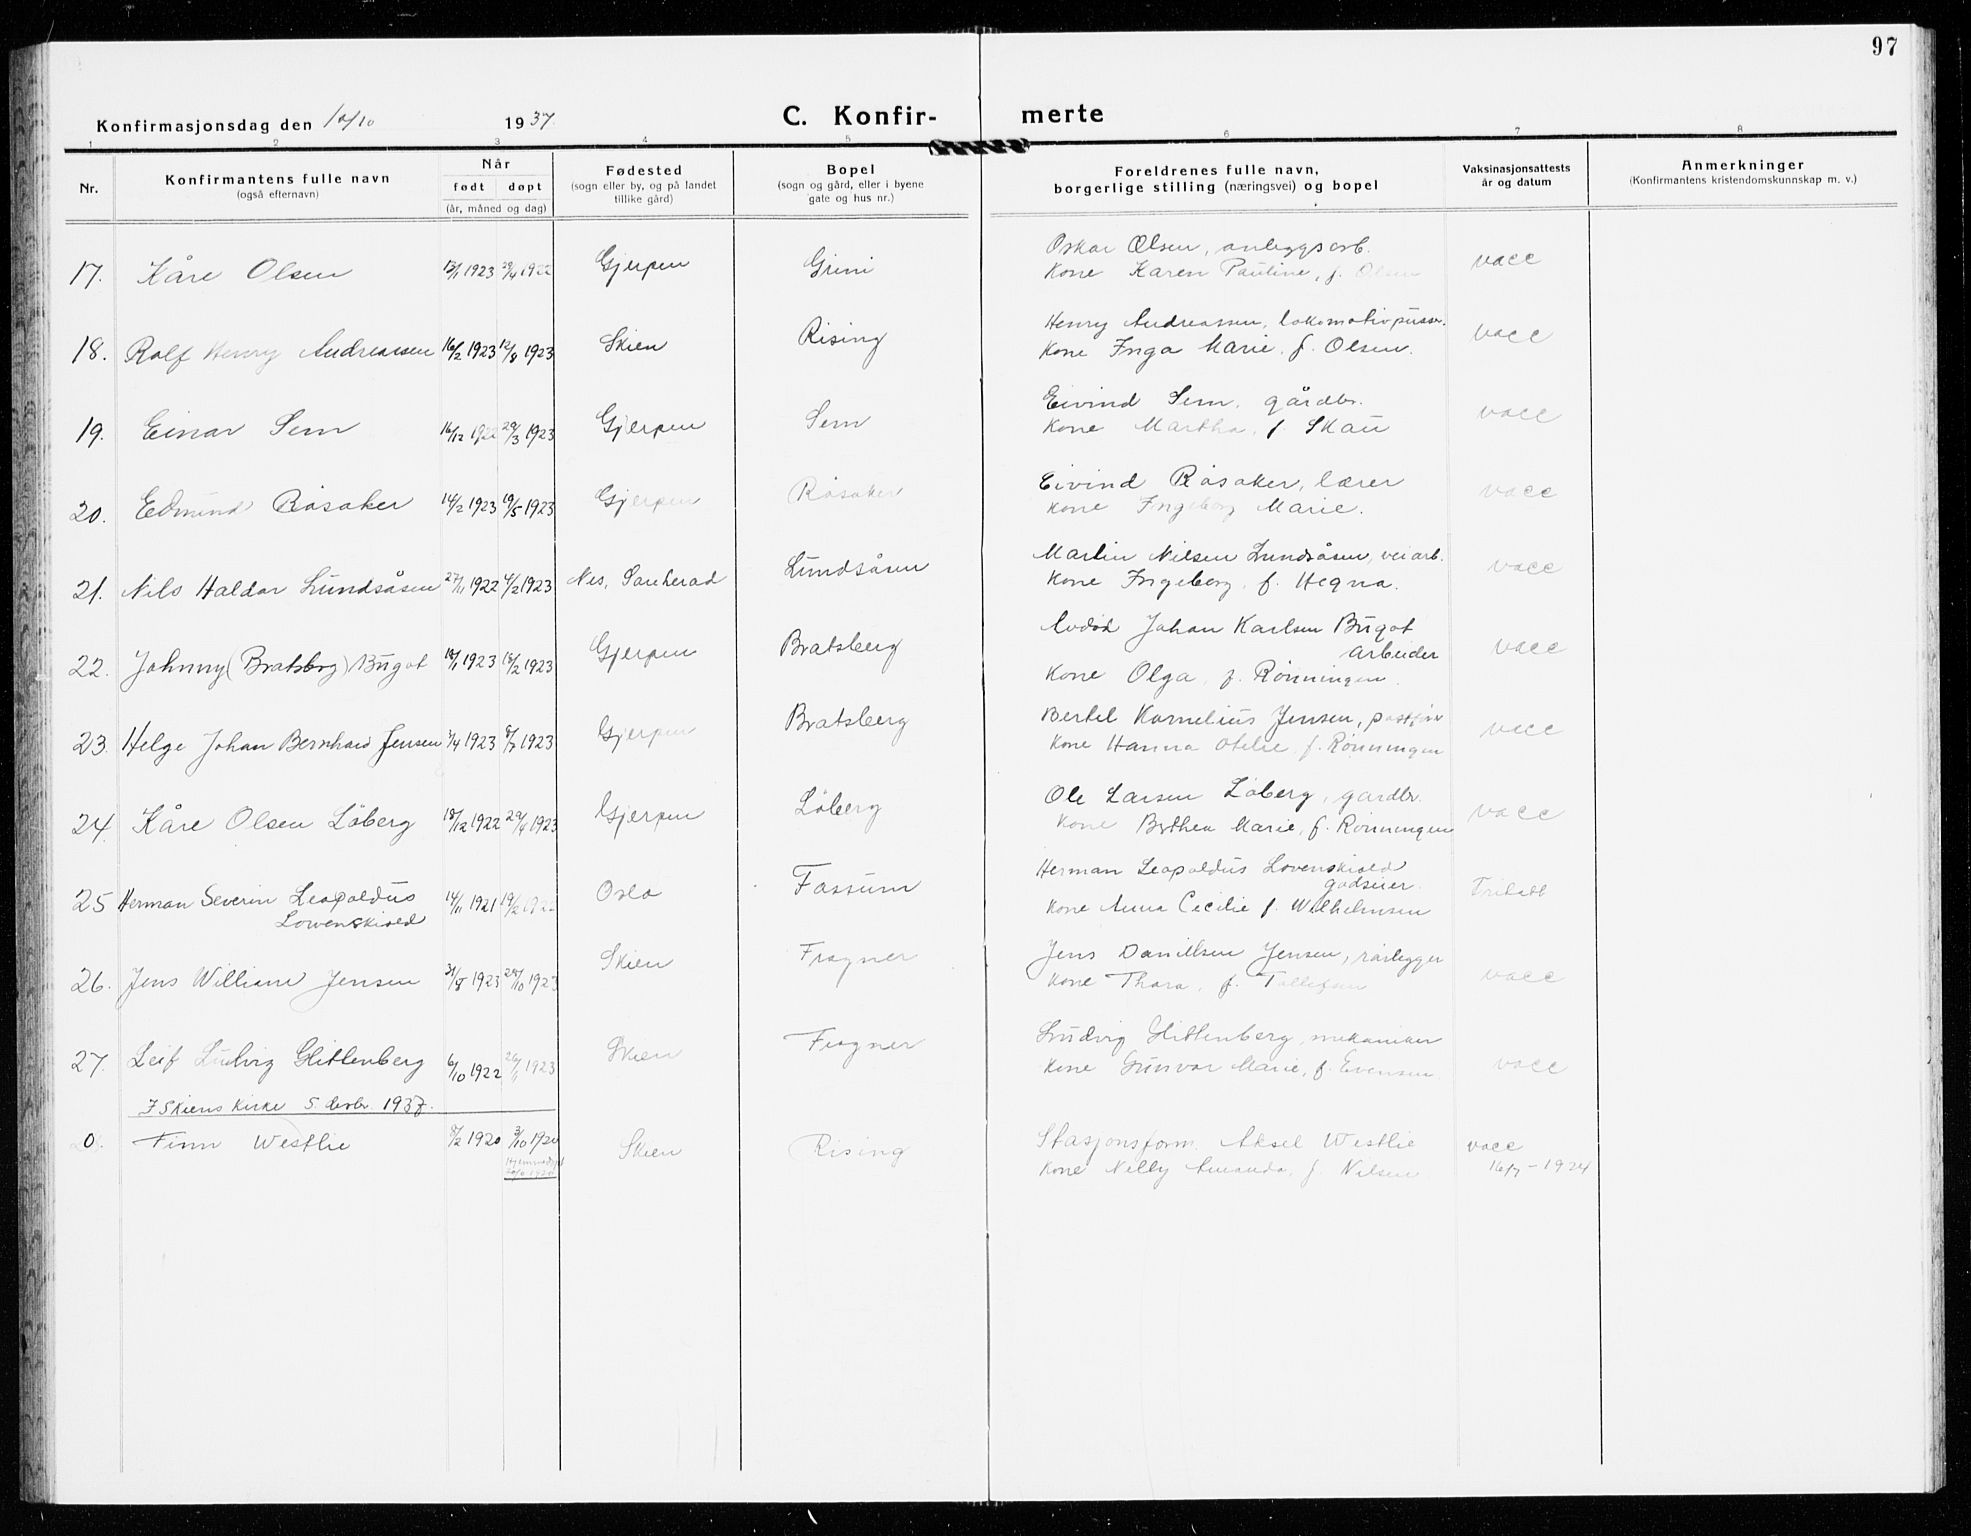 97
Konfirmasjonsdag den 10/10 1937. C. Konfir- merte
1 2 3 4 5 6 7 8
Nr.
Konfirmantens fulle navn
(også efternavn)
Når
født døpt
(år, måned og dag)
Fødested
(sogn eller by, og på landet
tillike gård)
Bopel
(sogn og gård, eller i byene
gate og hus nr.)
Foreldrenes fulle navn,
borgerlige stilling (næringsvei) og bopel
Vaksinasjonsattests
år og datum
Anmerkninger
(Konfirmantens kristendomskunnskap m. v.)
17. Kåre Olsen 1923 29/4 1922 Gjerpen Grini Oskar Olsen, anleggsarb. vacc
Kone Karen Pauline, f. Olsen
18. Rolf Henry Andreassen 16/2 1923 12/8 1923 Skien Rising Henry Andreassen, lokomotivpusser. vacc
Kone Inga Marie, f. Olsen.
19. Einar Sem 16/12 1922 29/3 1923 Gjerpen Sem Eivind Sem, gårdbr. vacc
Kone Martha, f. Skau
20. Edmund Råsaker 14/2 1923 19/5 1923 Gjerpen Råsaker Eivind Råsaker, lærer vacc
Kone Ingeborg Marie.
21. Nils Haldor Lundsåsen 27/11 1922 4/2 1923 Nes, Sauherad Lundsåsen Martin Nilsen Lundsåsen, veiarb. vacc
Kone Ingeborg, f. Hegna.
22. Johnny (Bratsberg) Bugot 1923 18/2 1923 Gjerpen Bratsberg Avdød Johan Karlsen Bugot
arbeider vacc
Kone Olga, f. Rønningen.
23. Helge Johan Bernhard Jensen 1923 8/7 1923 Gjerpen Bratsberg Bertel Kornelius Jensen, vacc
Kone Hanna Otelie, f. Rønningen
24. Kåre Olsen Løberg 18/12 1922 29/4 1923 Gjerpen Løberg Ole Larsen Løberg, gardbr. vacc
Kone Berthea Marie, f. Rønningen
25 Herman Severin Leopoldus
Løwenskiold 14/11 1921 19/2 1922 Oslo Fossum Herman Leopoldus Løvenskiold
godseier. Fritatt
Kone Anna Cecilie f. Wilhelmsen
26. Jens William Jensen 31/8 1923 28/10 1923 Skien Frogner Jens Daniellsen Jensen, rørlegger vacc
Kone Thora, f. Tollefsen
27. Leif Ludvig Glittenberg 6/10 1922 1923 Skien Frogner Ludvig Glittenberg, mekaniker vacc
Kone Gunvor Marie, f. Evensen
I Skiens Kirke 5. desbr. 1937.
Finn Westlie 8/2 1920 3/10 1920 Skien Rising Stasjonsform. Aksel Westlie vacc
Hjemmedøpt
Kone Nelly Amanda, f. Nilsen 16/7 - 1924